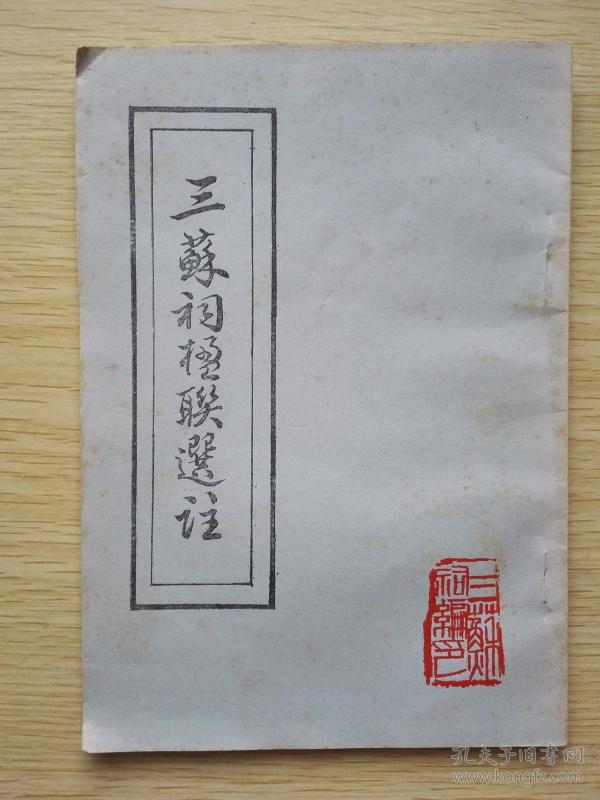 三蘇祠楹聯選註
三蘇
祠編印
孔夫子旧书网
www.kongfz.com